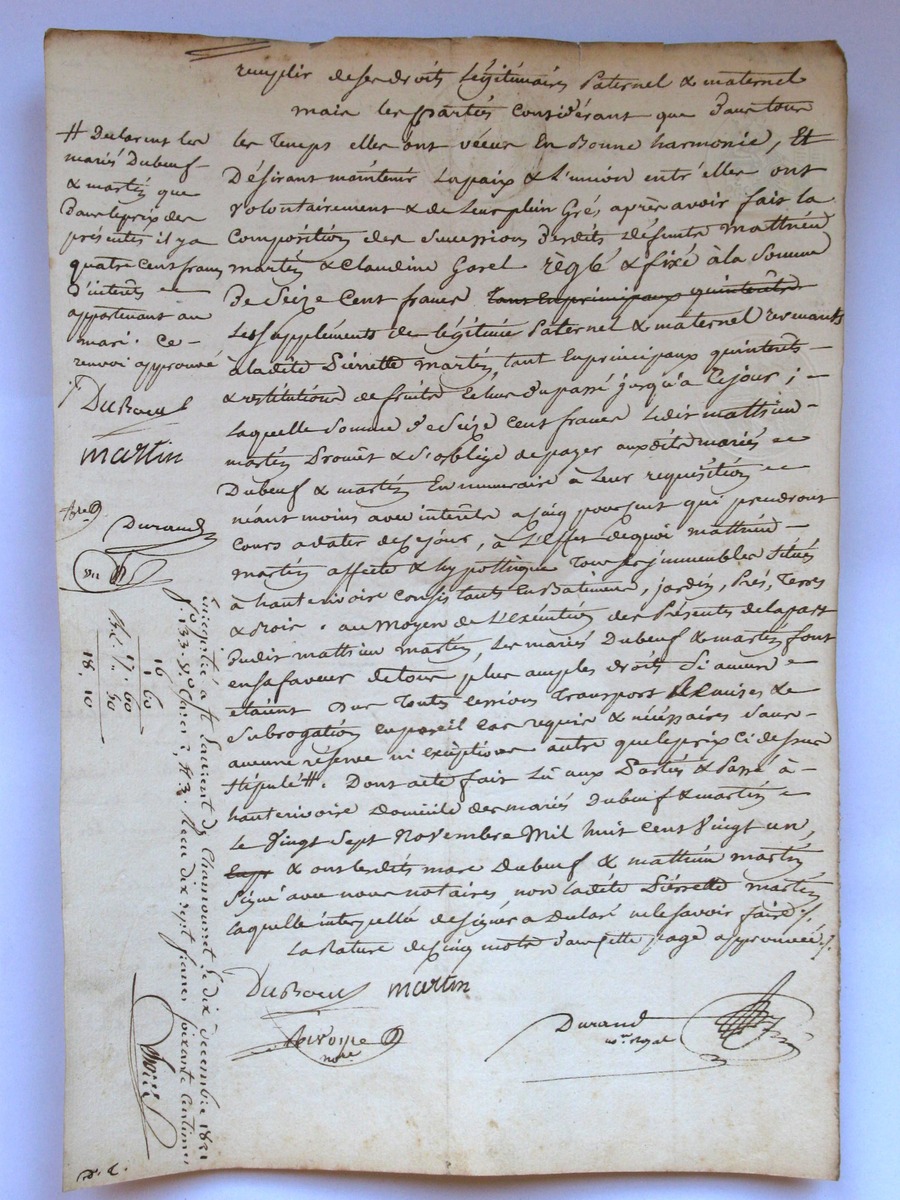 remplir de ses droits légitimaires Paternel & maternel
mais les parties considérant que Dans tous
les Temps elles ont vécu En Bonne harmonie, Et
Désirant maintenir la paix & L'union entr'elles ont
volontairement & de Leur plein Grés après avoir fait la
Composition des Successions Desdits Défunts Mathieu
martin & Claudine Gorel règlé & fixé à la Somme
De Seize Cent francs tant En principaux qu'interêts
Les supplements de légitime Paternel & maternel revenants
à ladite Pierrette martin, tant En principaux qu'interêts
& restitutions de fruits Echus Du passé jusqu'à Ce jour ;
Laquelle Somme De Seize Cent francs Ledit mathieu
martin Promet & S'oblige de payer auxdits mariés
Dubeuf & martin En numeraire à Leur requisition
néant moins avec interêts a cinq pour cent qui prendront
Cours a dater de ce jour, à L'Effet de quoi mathieu
martin affecte & hypothèque Tous Ses immeubles situés
à hauterivoire Consistants En Batiments, jardin, Prés, Terres
& Bois. au Moyen de L'exécution des Présents de la part
Dudit mathieu martin, Les mariés Dubeuf & martin font
en sa faveur de tous plus amples Droits Si aucuns
étaient Due Toutes Cessions Transport Remises &
Subrogations En pareil Cas requis & nécéssaires Sans
aucune réserve ni exceptions autre que le prix Ci dessus
Stipulé #. Dont acte fait Lû aux Parties & Passé à
hauterivoire Domicile des mariés Dubeuf & martin
Le Vingt Sept Novembre Mil huit Cent Vingt un,
& ont lesdits marc Dubeuf & mathieu martin
Signé avec nous notaires, non ladite Pierrette martin
laquelle interpellée de signer a Déclaré ne le savoir faire ./.
La Rature de cinq mots Dans cette page approuvée ./.
DuBoeuf martin
nore.
Durand
nre. royal
# Déclarent les
mariés Dubeuf
& martin que
Dans le prix des
présentes il y a
quatre cent francs
D'interêts
appartenant au
mari. Ce
renvoi approuvé
./.
DuBoeuf
martin
Durand
Enregistré à St Laurent de Chamousset le dix décembre 1821
fo. 133 Vo. Cases 2 & 3. Recu dix sept francs soixante centimes
16
1 60
17. 60
50
18, 10